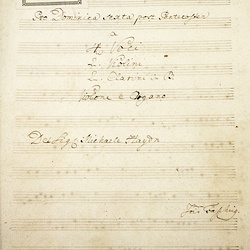 Pro Dominica Sexta post Pentecosten
a
4 Voci
2. Violini
2. Clarini in B
Violone e Organo
Del Sig. Michaele Haydn